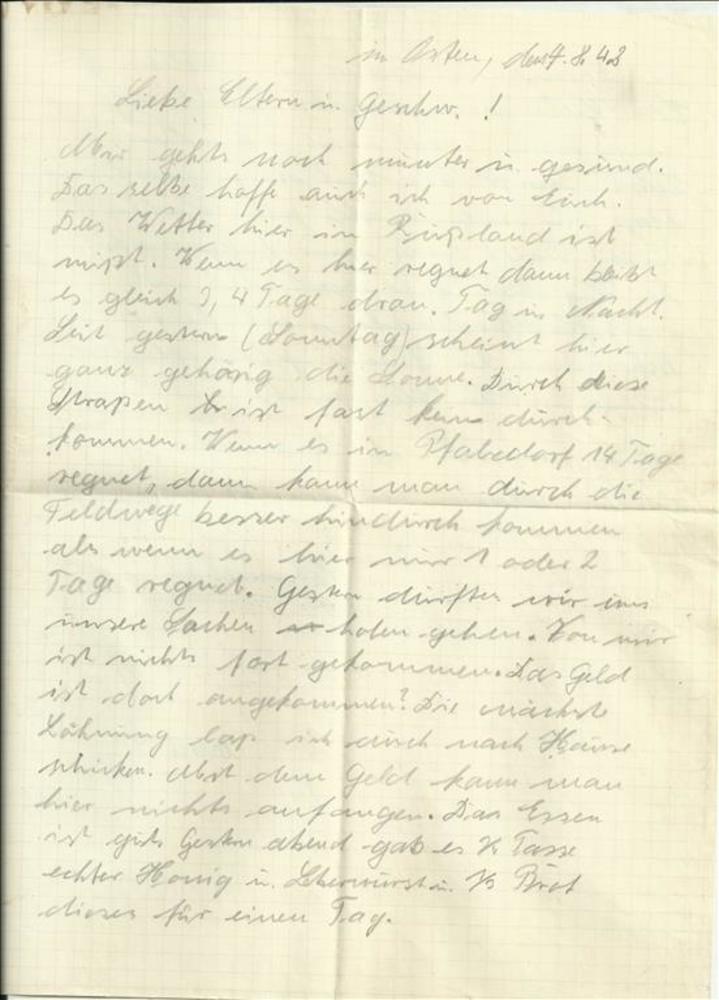 im Osten, den 4.8.43
Liebe Eltern u. Geschw. !
Mir gehts noch munter u. gesund.
Das selbe hoffe auch ich von Euch.
Das Wetter hier in Rußland ist
mißt. Wenn es hier regnet dann bleibt
es gleich 3, 4 Tage dran. Tag u. Nacht.
Seit gestern (Sonntag) scheint hier
ganz gehörig die Sonne. Durch diese
Straßen ist fast kein durch-
kommen. Wenn es in Pfabedorf 14 Tage
regnet, dann kann man durch die
Feldwege besser hindurch kommen
als wenn es hier nur 1 oder 2
Tage regnet. Gestern durften wir uns
unsere Sachen holen gehen. Von mir
ist nichts fort gekommen. Das Geld
ist doch angekommen? Die nächste
Löhnung laß ich auch nach Hause
schicken. Mit dem Geld kann man
hier nichts anfangen. Das Essen
ist gut. Gestern abend gab es ½ Tasse
echter Honig u. Leberwurst u. ½ Brot
dieses für einen Tag.